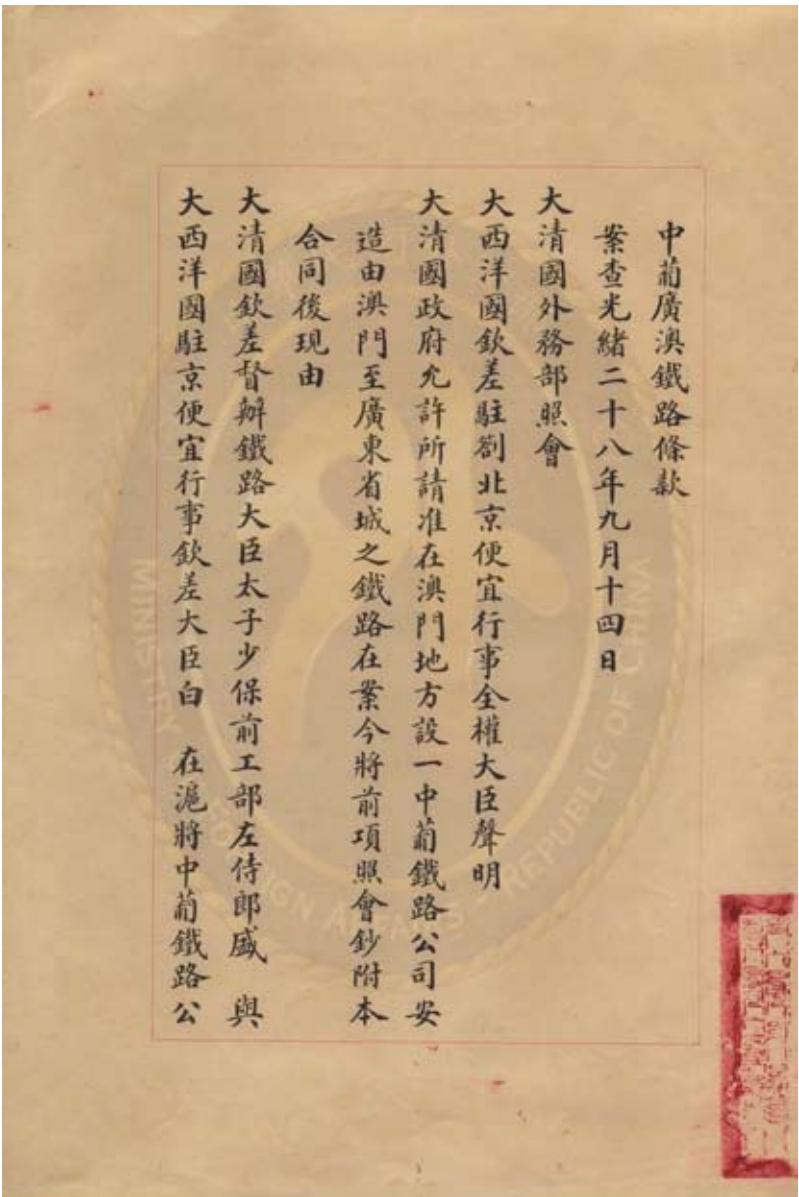 中葡廣澳鐵路條款
案查光緒二十八年九月十四日
大清國外務部照會
大西洋國欽差駐劄北京便宜行事全權大臣聲明
大清國政府允許所請准在澳門地方設一中葡鐵路公司安
造由澳門至廣東省城之鐵路在案今將前項照會鈔附本
合同後現由
大清國欽差督辦鐵路大臣太子少保前工部左侍郎盛 與
大西洋國駐京便宜行事欽差大臣白 在滬將中葡鐵路公
MINISTRY
FOREIGN AFFAIRS
REPUBLIC OF CHINA